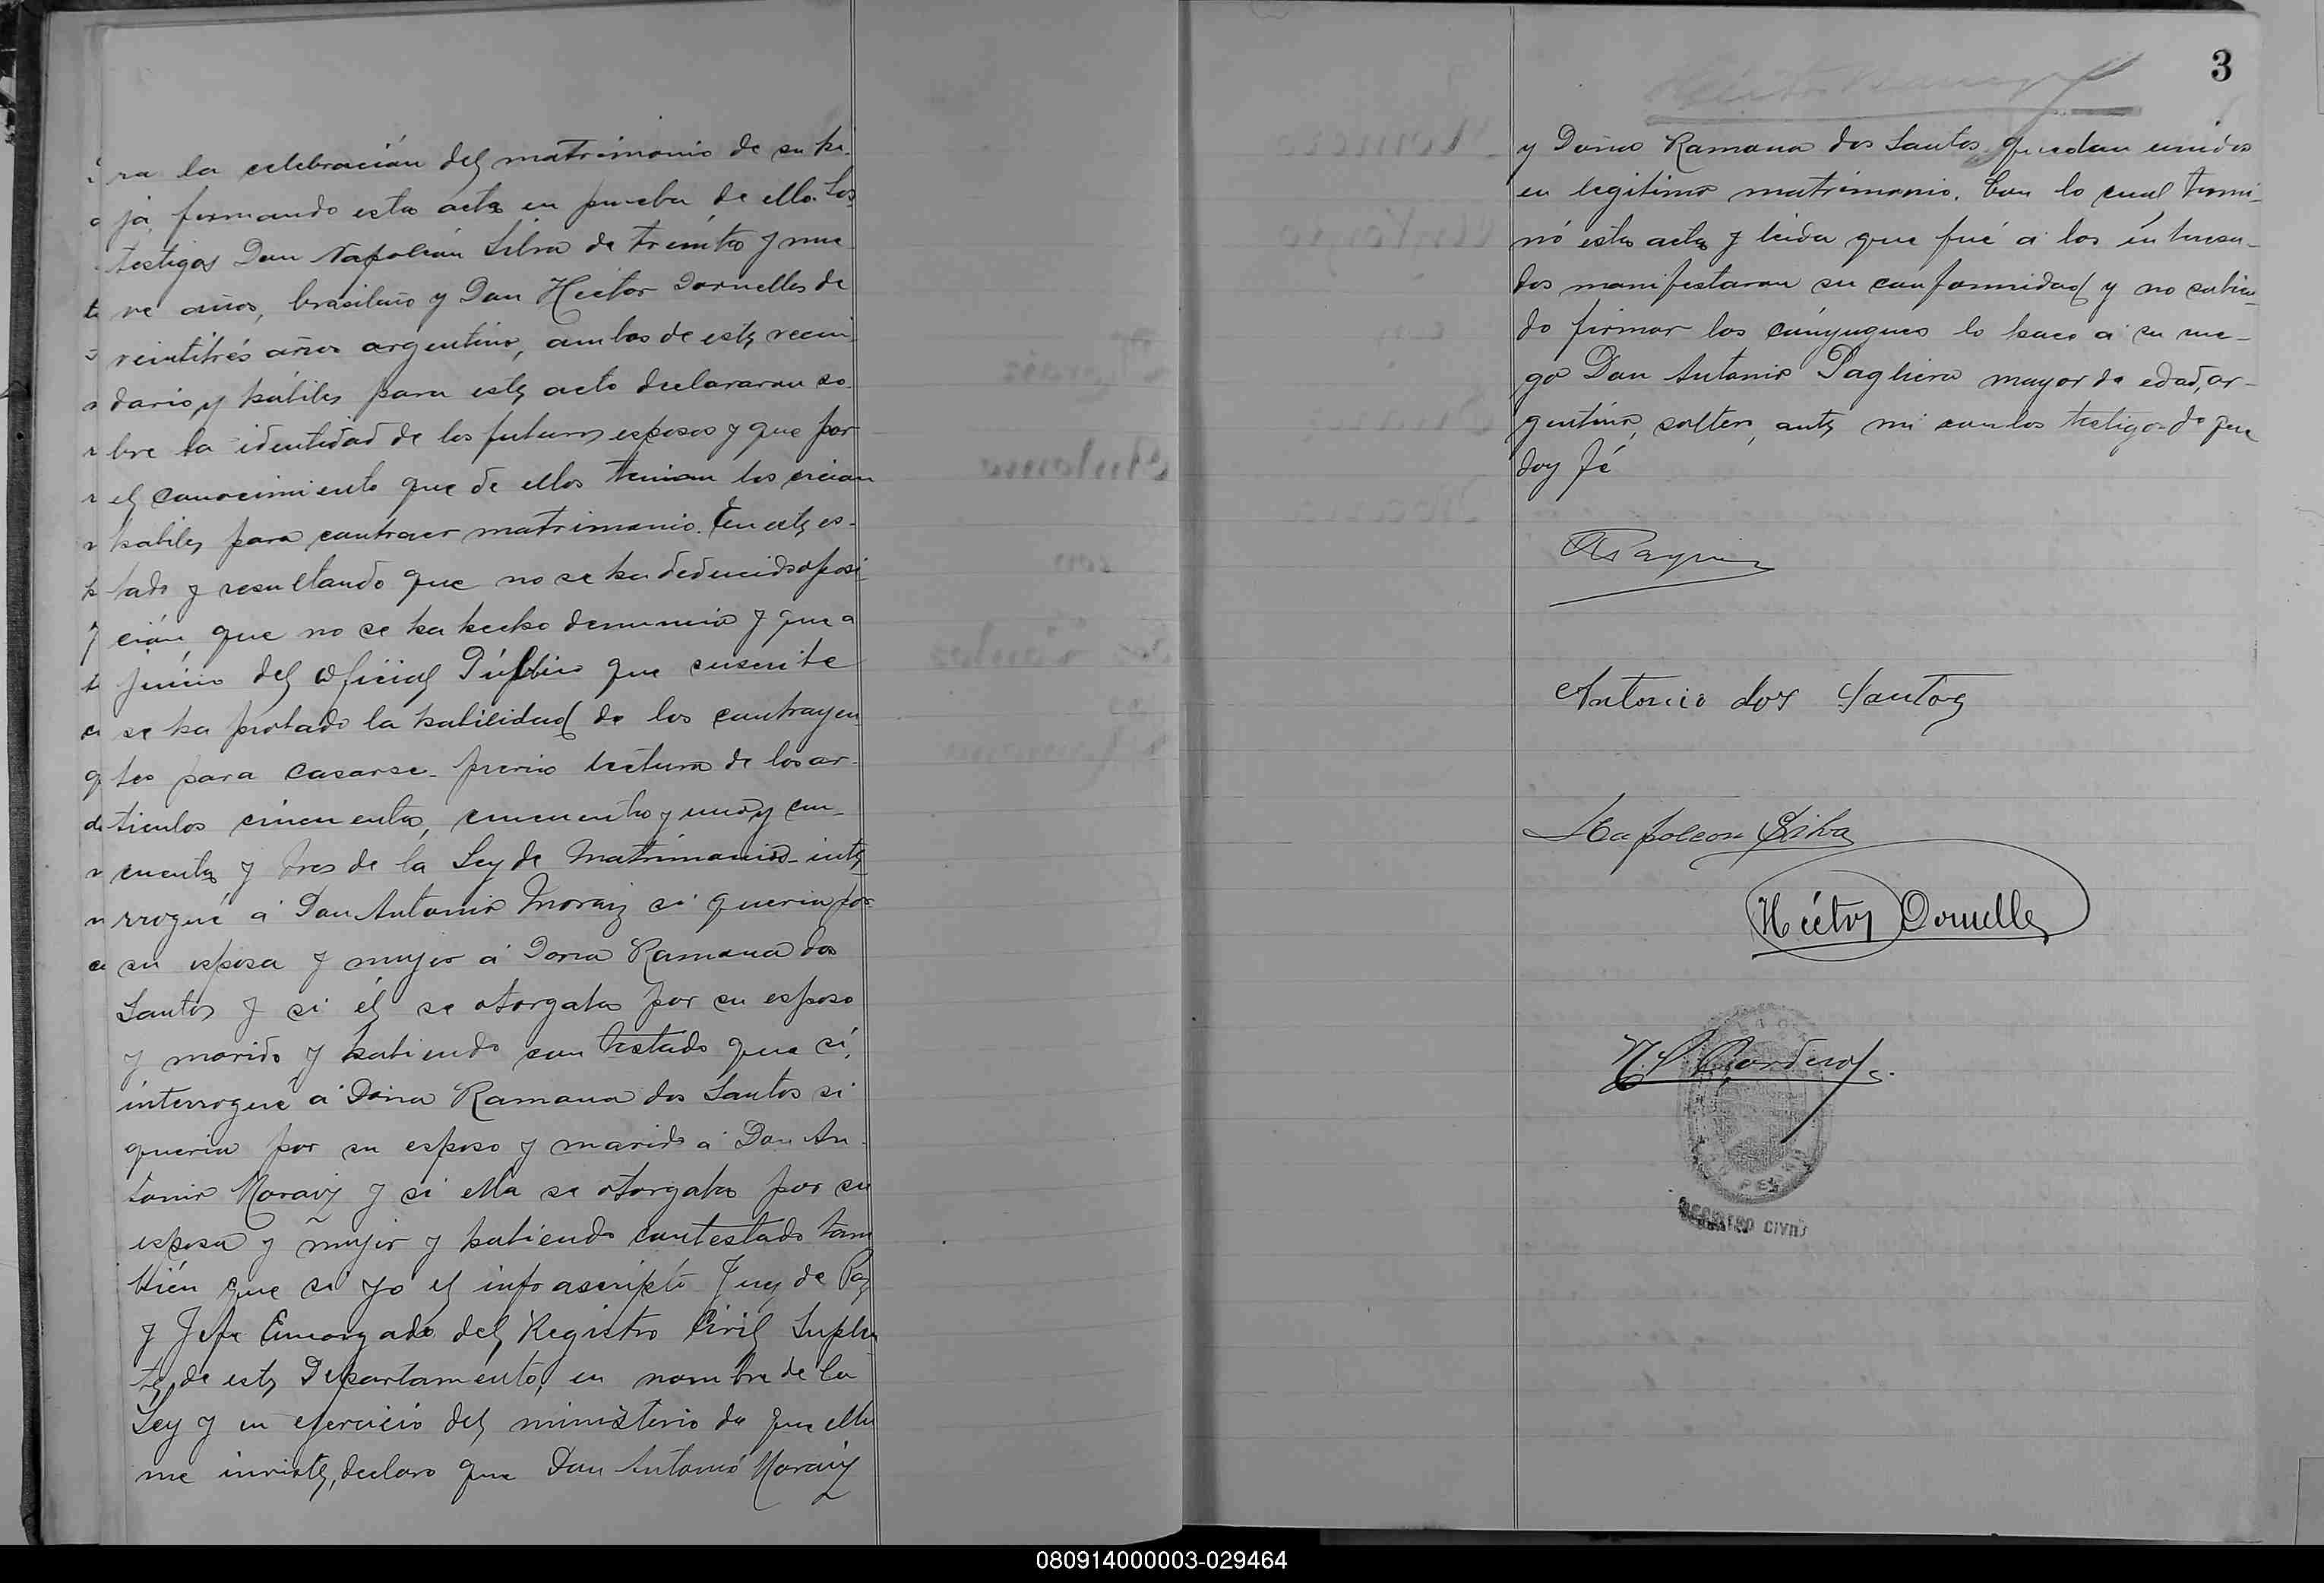 ra la celebración del matrimonio de su hi-
ja, firmando esta acta en prueba de ello. Los
testigos Don Napoleón Silva de treinta y nue
ve años, brasileño y Don Héctor Dornelles de
veintitrés años argentino, ambos de este vecin
dario y hábiles para este acto declararon so-
bre la identidad de los futuros esposos y que por
el conocimiento que de ellos tenian los creian
habiles para contraer matrimonio. En este es-
tado y resultando que no se ha deducido oposi
ción, que no se ha hecho denuncia y que a
juicio del Oficial Público que suscribe
se ha probado la habilidad de los contrayen
tes para casarse - previo lectura de los ar-
ticulos cincuenta, cincuenta y uno y cin-
cuenta y tres de la Ley de Matrimonio - inte
rrogué á Don Antonio Moraiz si queria por
su esposa y mujer á Doña Ramona dos
Santos y si él se otorgaba por su esposo
y marido y habiendo contestado que sí,
interrogué á Doña Ramona dos Santos si
queria por su esposo y marido á Don An-
tonio Moraiz y si ella se otorgaba por su
esposa y mujer y habiendo contestado tam
bién que si yo el infrascripto Juez de Paz
y Jefe Encargado del Registro Civil Suplen
te de este Departamento, en nombre de la
Ley y en ejercicio del ministerio de que ella
me inviste, declaro que Don Antonio Moraiz
3
y Doña Ramona dos Santos quedan unidos
en legitimo matrimonio. Con lo cual termi-
nó esta acta y leida que fué á los interesa-
dos manifestaron su conformidad y no sabien
do firmar los cónyugues lo hace á su rue-
go Don Antonio Pagliera mayor de edad, ar-
gentino, soltero, ante mi con los testigos de que
doy fé
Antonio dos Santos
Napoleon Silva
Héctor Dornelles
REGISTRO CIVIL
080914000003-029464